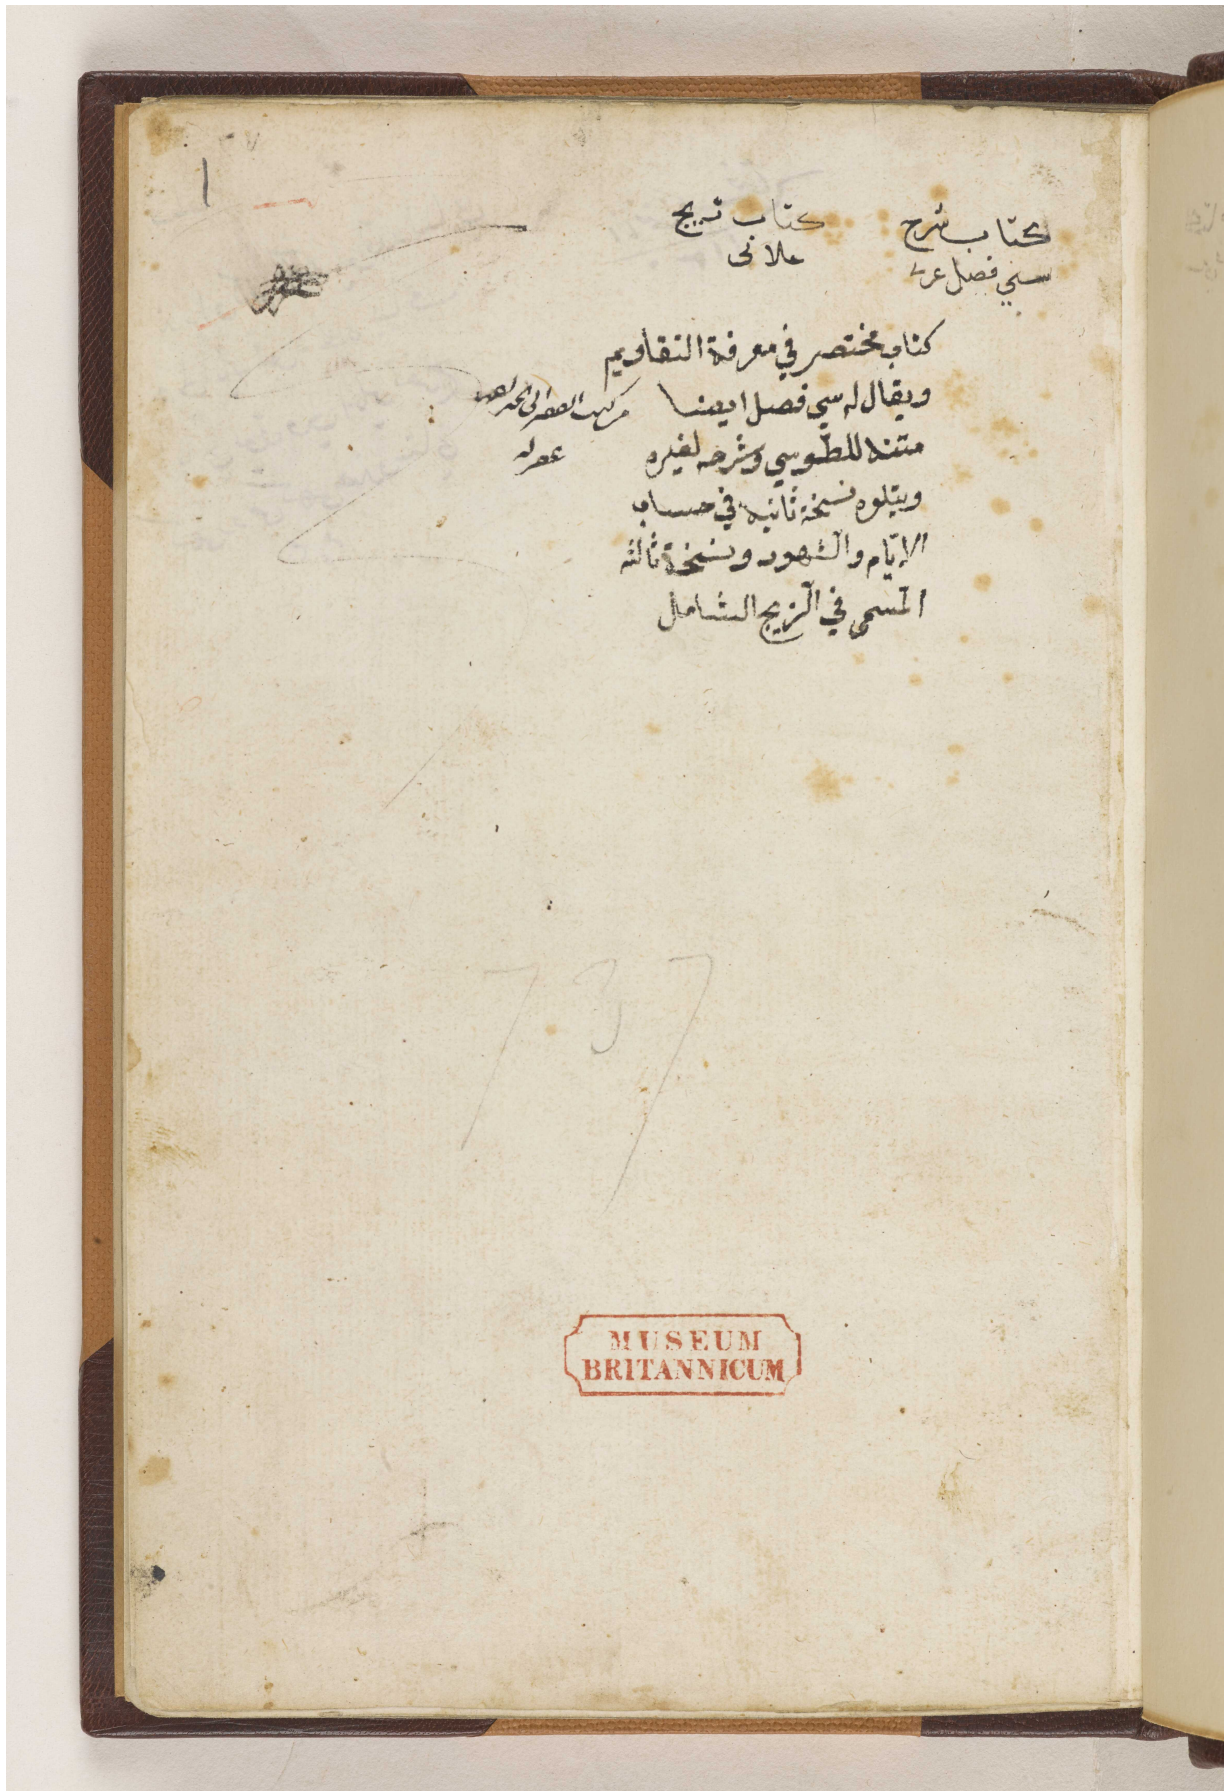 1
كتاب شرح
سي فصل عربي
كتاب زيج
علائى
كتاب مختصر في معرفة التقاويم
ويقال له سي فصل ايضا
متنه للطوسي وشرحه لغيره
ويتلوه نسخة ثانيه في حساب
الايّام والشهور ونسخة ثالثه
المسمى في الزيج الشامل
من كتب الفقير الى الله
غفر له
737
MUSEUM
BRITANNICUM